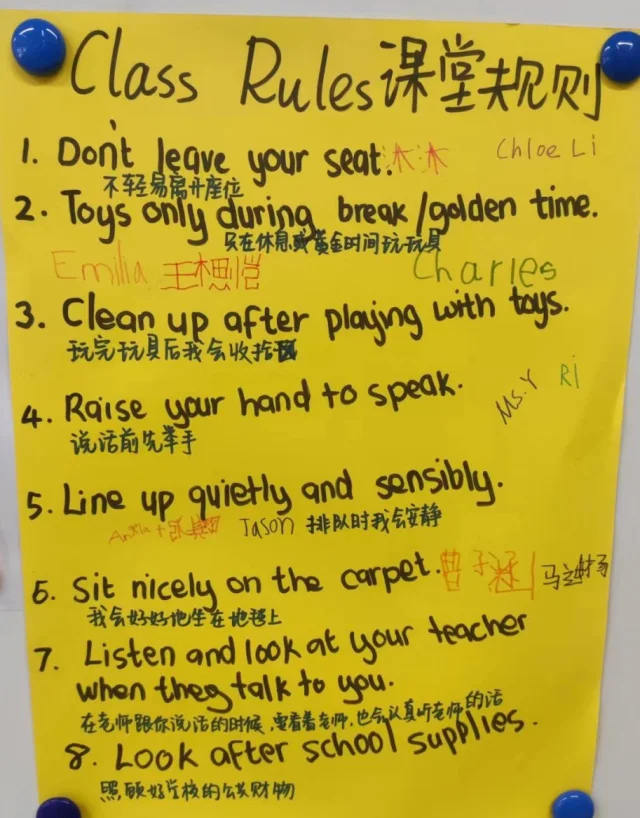 Class Rules课堂规则
1. Don't leave your seat. 沐沐 Chloe Li
不轻易离开座位
2. Toys only during break/golden time.
只在休息或黄金时间玩玩具
Emilia 王想恺 Charles
3. Clean up after playing with toys.
玩完玩具后我会收拾
4. Raise your hand to speak. Ms. Y Ri
说话前先举手
5. Line up quietly and sensibly.
Jason 排队时我会安静
6. Sit nicely on the carpet. 曹子涵
我会好好地坐在地毯上
7. Listen and look at your teacher
when they talk to you.
在老师跟你说话的时候,要看着老师,也会认真听老师的话
8. Look after school supplies.
照顾好学校的公共财物